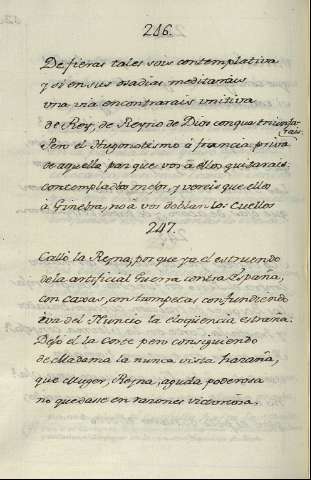 246.
De fieras tales sois contemplativa
y si en sus osadias meditarais
una via encontrarais unitiva
de Rey, de Reyno de Dios con que triunfa-
rais.
Pero el Hugonotismo á francia priva
de aquella paz que vos á ellos quitarais.
contempladlos mejor, y vereis que ellos
á Ginebra, no á vos doblan los cuellos
247.
Calló la Reyna, porque ya el estruendo
de la artificial Guerra contra España,
con caxas, con trompetas confundiendo
iva del Nuncio la eloquencia estraña.
Dejo él la Corte pero consiguiendo
de Madama la nunca vista hazaña,
que Muger, Reyna, aguda poderosa
no quedase en razones victoriosa.